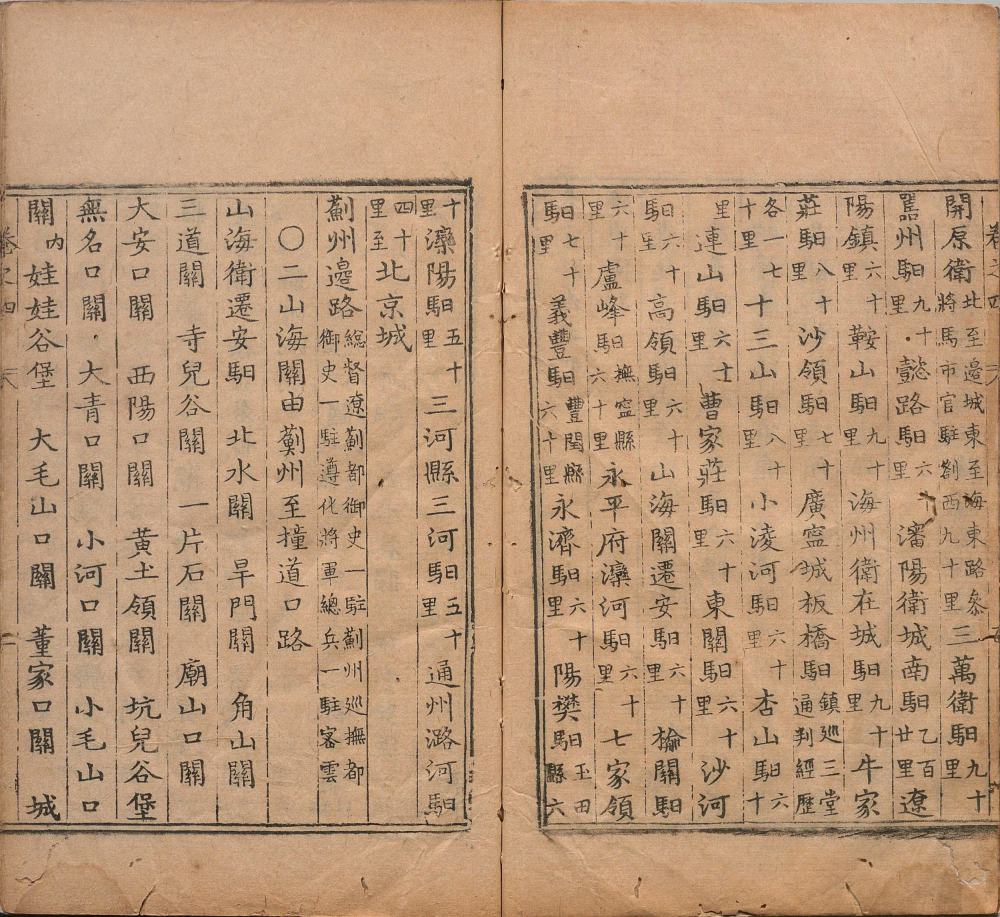 開原衛北至邉城東至海東路叅將馬市官駐劄西九十里三萬衛馹九十里
嚚州馹九十里懿路馹六十里瀋陽衛城南馹乙百廿里遼
陽鎮六十里鞍山馹九十里海州衛在城馹九十里牛家
莊馹八十里沙領馹七十里廣寧城板橋馹鎮巡三堂通判經歷
各一七十里十三山馹八十里小淩河馹六十里杏山馹六十
里連山馹六十里曹家莊馹六十里東關馹六十里沙河
馹六十里高領馹六十里山海關遷安馹六十里榆關馹
六十里盧峰馹撫寧縣六十里永平府灤河馹六十里七家領
馹七十里義豐馹豐閏縣六十里永濟馹六十里陽樊馹玉田縣六
十里灤陽馹五十里三河縣三河馹五十里通州潞河馹
四十里至北京城
薊州邉路總督遼薊都御史一駐薊州巡撫都御史一駐遵化將軍總兵一駐客雲
〇二山海關由薊州至撞道口路
山海衛遷安馹 北水關 旱門關 角山關
三道關 寺兒谷關 一片石關 廟山口關
大安口關 西陽口關 黃土領關 坑兒谷堡
無名口關 大青口關 小河口關 小毛山口
關內娃娃谷堡 大毛山口關 董家口關 城
卷之四